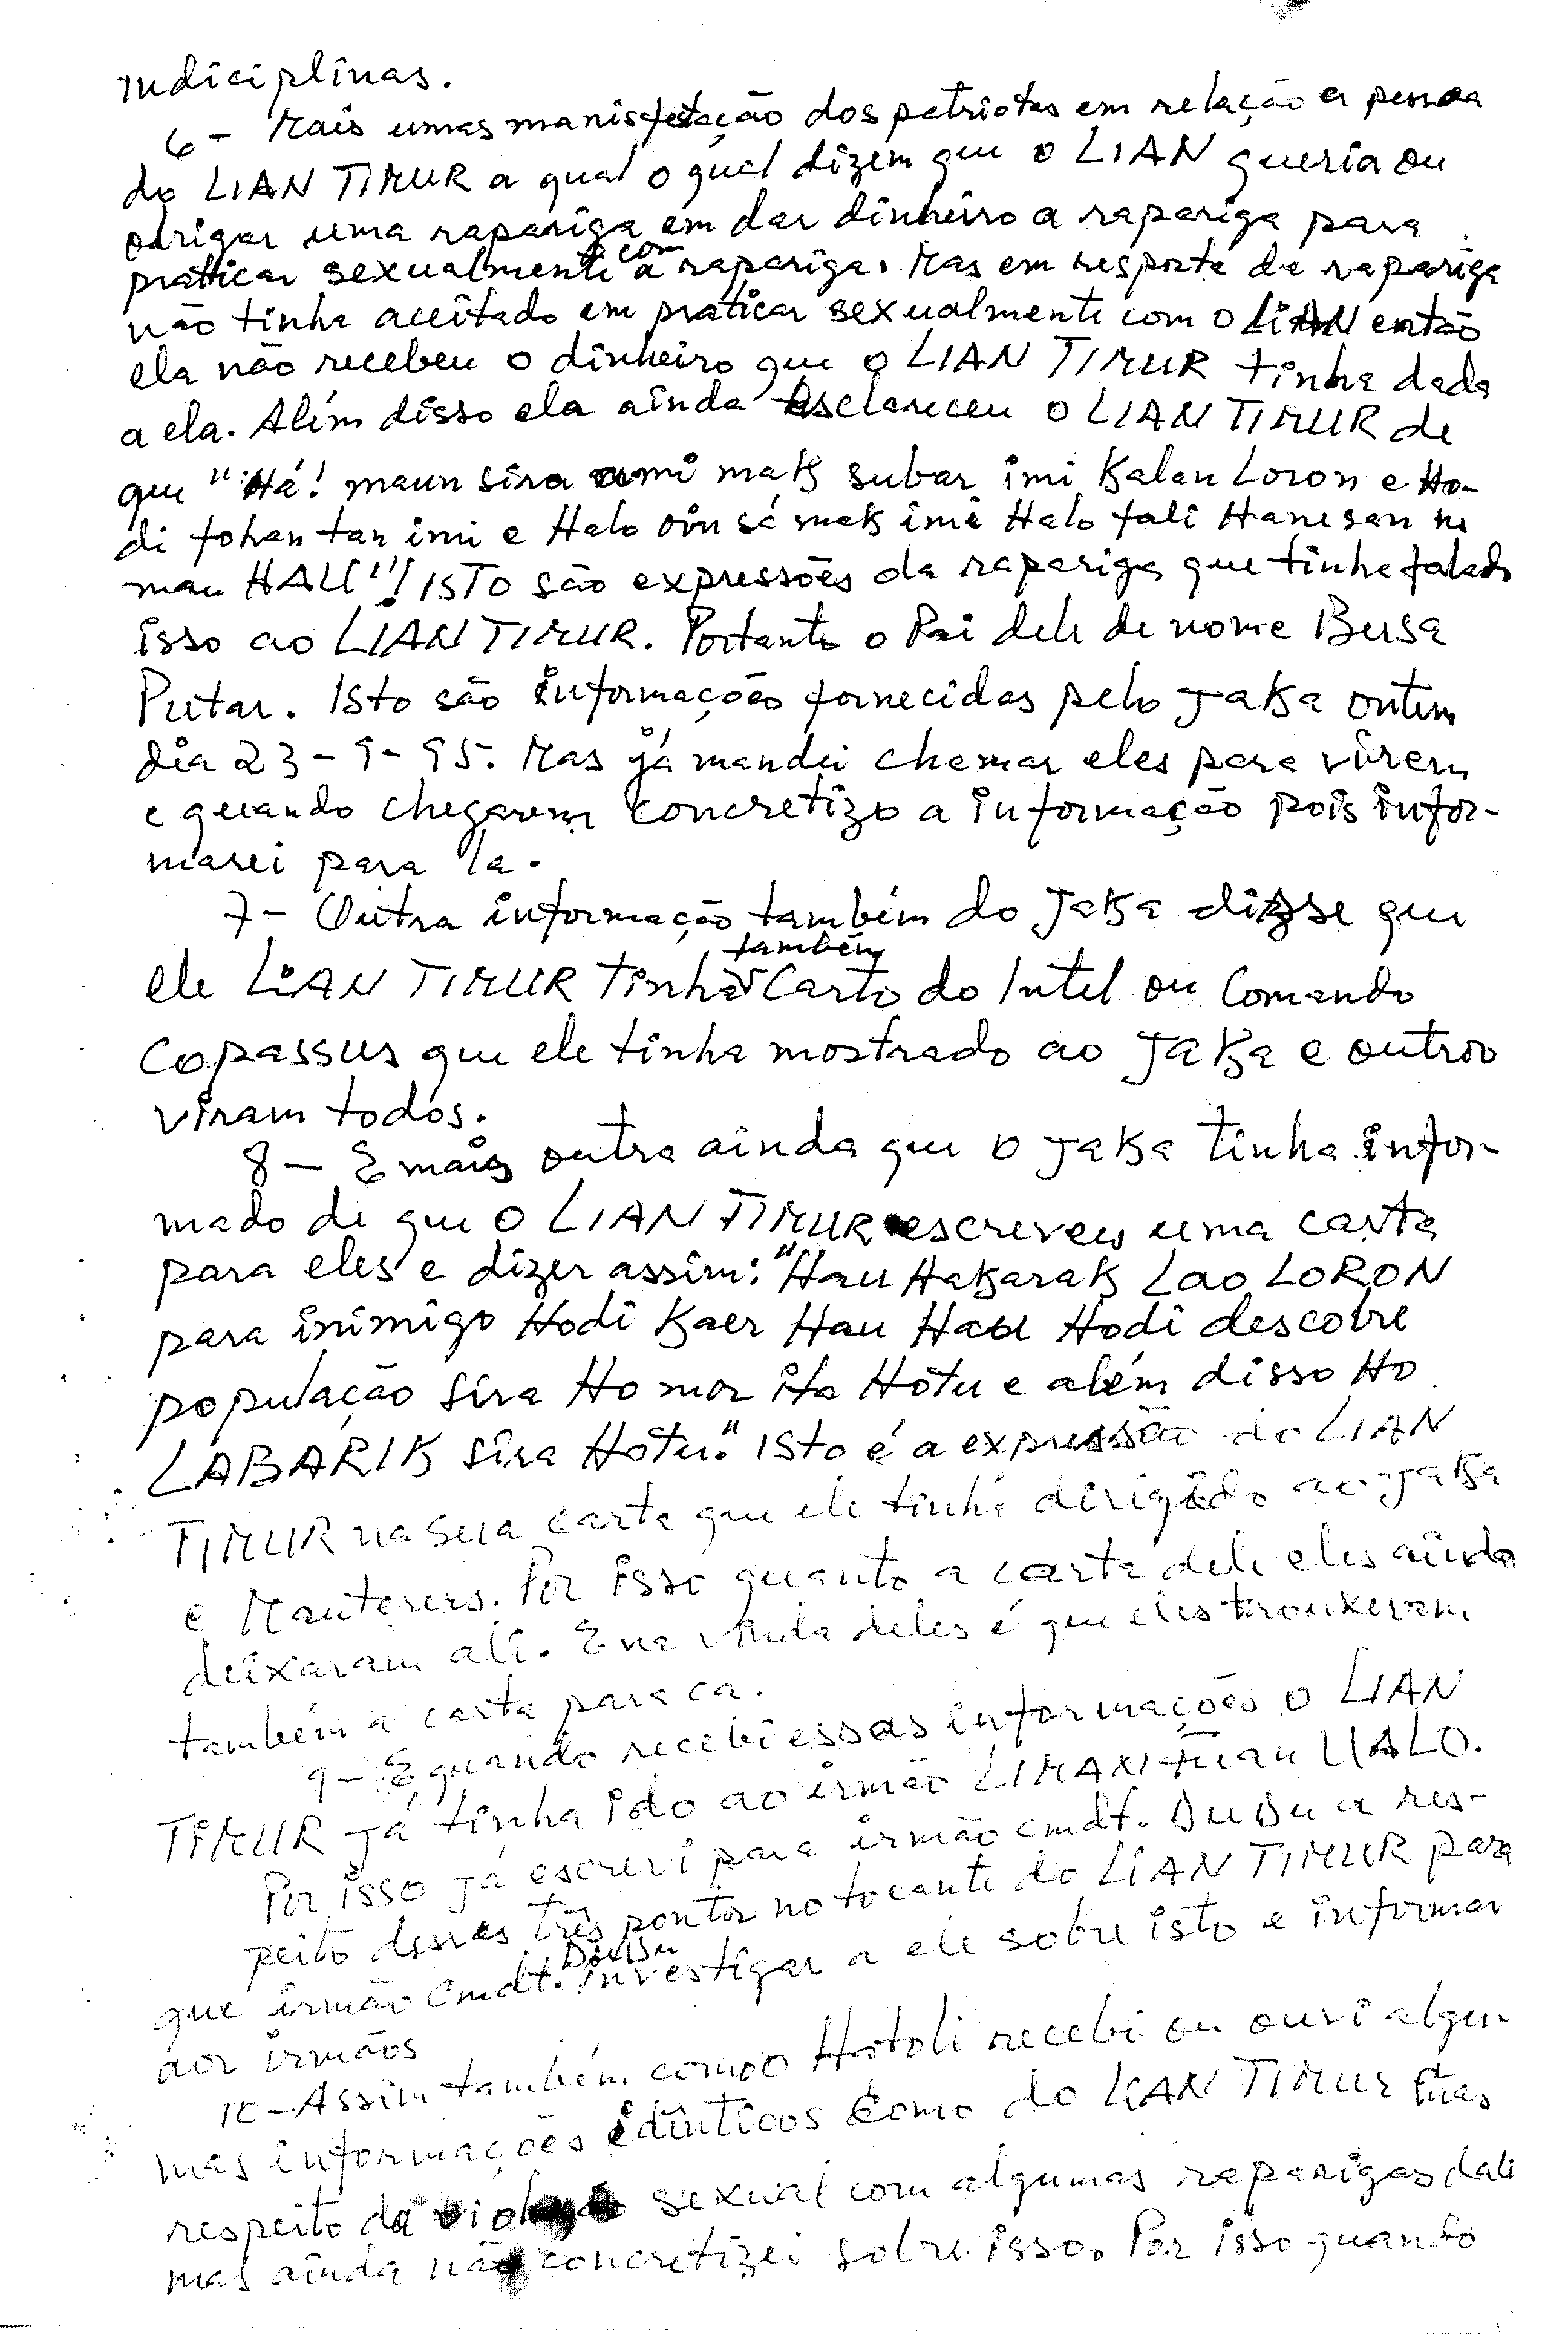 indiciplinas.
6 - Mais umas manisfestação dos patriotas em relação a pessoa
do LIAN TIMUR a qual o qual dizem que o LIAN queria ou
obrigar uma rapariga em dar dinheiro a rapariga para
praticar sexualmente com a rapariga. Mas em resposta da rapariga
não tinha aceitado em praticar sexualmente com o LIAN então
ela não recebeu o dinheiro que o LIAN TIMUR tinha dada
a ela. Além disso ela ainda esclareceu o LIAN TIMUR de
que "Há! maun sira ami mak subar imi Kalan Loron e Ho-
di fohan tan imi e Halo oin sá mak imi Halo fali Hanesan ne
mau HAU"! ISTO são expressões da rapariga que tinha falado
isso ao LIAN TIMUR. Portanto o Pai dele de nome Bersa
Putar. Isto são informações fornecidas pelo JaKa ontem
dia 23-9-95. Mas já mandei chamar eles para virem
e quando chegarem concretizo a informação pois infor-
marei para la.
7 - Outra informação também do JaKa disse que
ele LIAN TIMUR tinha também Carto do Intel ou Comando
Copassus que ele tinha mostrado ao JaKa e outros
viram todos.
8 - E mais outra ainda que o JaKa tinha infor-
mado de que o LIAN TIMUR escreveu uma carta
para eles e dizer assim: "Hau HaKaraK Lao LORON
para inimigo Hodi Kaer Hau Hau Hodi descobre
população sira Ho mor ita Hotu e além disso Ho
LABARIK sira Hotu." Isto é a expressão do LIAN
TIMUR na sua carta que ele tinha dirigido ao JaKa
e Mauterers. Por isso quanto a carta dele eles ainda
deixaram ali. E na vinda deles é que eles trouxeram
também a carta para ca.
9 - E quando recebi essas informações o LIAN
TIMUR já tinha ido ao irmão LIMAXI UALO.
Por isso já escrevi para irmão cmdt. DuDu a res-
peito desses três pontos no tocante do LIAN TIMUR para
que irmão Cmdt. DuDu investigar a ele sobre isto e informar
aos irmãos
10 - Assim também como o Hotoli recebi ou ouvi algu-
mas informações idênticos como do LIAN TIMUR a
respeito da violação sexual com algumas raparigas dali
mas ainda não concretizei sobre isso. Por isso quando